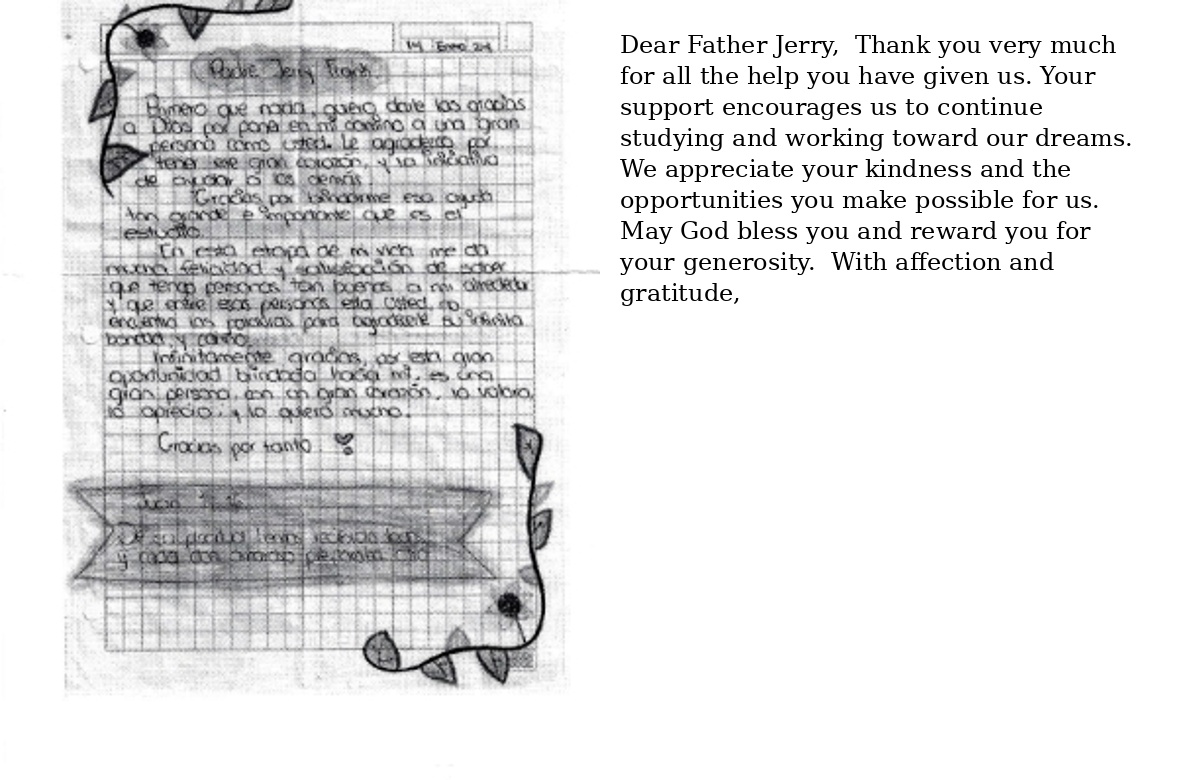 14 Ene 24
Padre Jerry Frank.
Primero que nada, quiero darle las gracias
a Dios por poner en mi camino a una gran
persona como usted. Le agradezco por
tener ese gran corazón, y la iniciativa
de ayudar a los demás.
Gracias por brindarme esa ayuda
tan grande e importante que es el
estudio.
En esta etapa de mi vida me da
mucha felicidad y de saber
que tengo personas tan buenas a mi alrededor
y que entre esas personas esta Usted, no
encuentro las palabras para agradecerle su infinita
bondad y cariño.
Infinitamente gracias, por esta gran
oportunidad brindada hacia mí, es una
gran persona, con un gran corazón, lo valoro,
lo aprecio, y lo quiero mucho.
Gracias por tanto
Juan 1:16
De su plenitud
y
Dear Father Jerry,  Thank you very much
for all the help you have given us. Your
support encourages us to continue
studying and working toward our dreams.
We appreciate your kindness and the
opportunities you make possible for us.
May God bless you and reward you for
your generosity.  With affection and
gratitude,